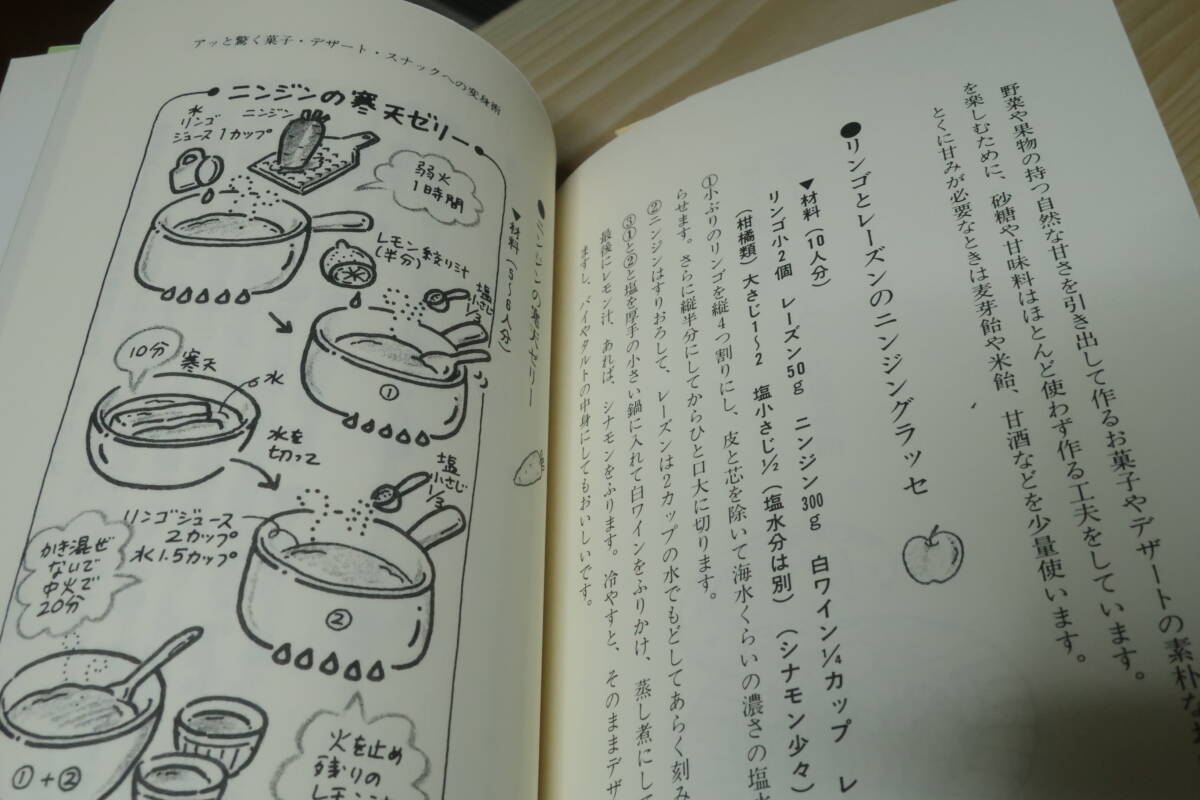 野菜や果物の持つ自然な甘さを引き出して作るお菓子やデザートの素朴な
を楽しむために、砂糖や甘味料はほとんど使わず作る工夫をしています。
とくに甘みが必要なときは麦芽飴や米飴、甘酒などを少量使います。
●リンゴとレーズンのニンジングラッセ
▼材料(10人分)
リンゴ小2個 レーズン50g ニンジン300g 白ワイン1/4カップ レ
(柑橘類)大さじ1〜2 塩小さじ1/2(塩水分は別)(シナモン少々)
①小ぶりのリンゴを縦4つ割りにし、皮と芯を除いて海水くらいの濃さの塩水
らせます。さらに縦半分にしてからひと口大に切ります。
②ニンジンはすりおろして、レーズンは2カップの水でもどしてあらく刻み
③①と②と塩を厚手の小さい鍋に入れて白ワインをふりかけ、蒸し煮にして
最後にレモン汁、あれば、シナモンをふります。冷やすと、そのままデザ
ますし、パイやタルトの中身にしてもおいしいです。
アッと驚く菓子・デザート・スナックへの変身術
●ニンジンの寒天ゼリー
▼材料(5〜6人分)
ニンジンの寒天ゼリー
水
リンゴ
ジュース1カップ
ニンジン
弱火
1時間
レモン絞り汁
(半分)
塩
小さじ
1/3
①
10分
寒天
水
水を
切って
塩
小さじ
1/3
リンゴジュース
2カップ
水1.5カップ
かき混ぜ
ないで
中火で
20分
②
①+②
火を止め
残りの